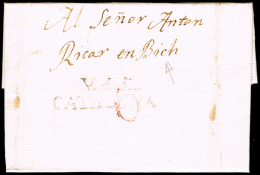 Al Señor Anton
Ricar en Bich
CATALUÑA